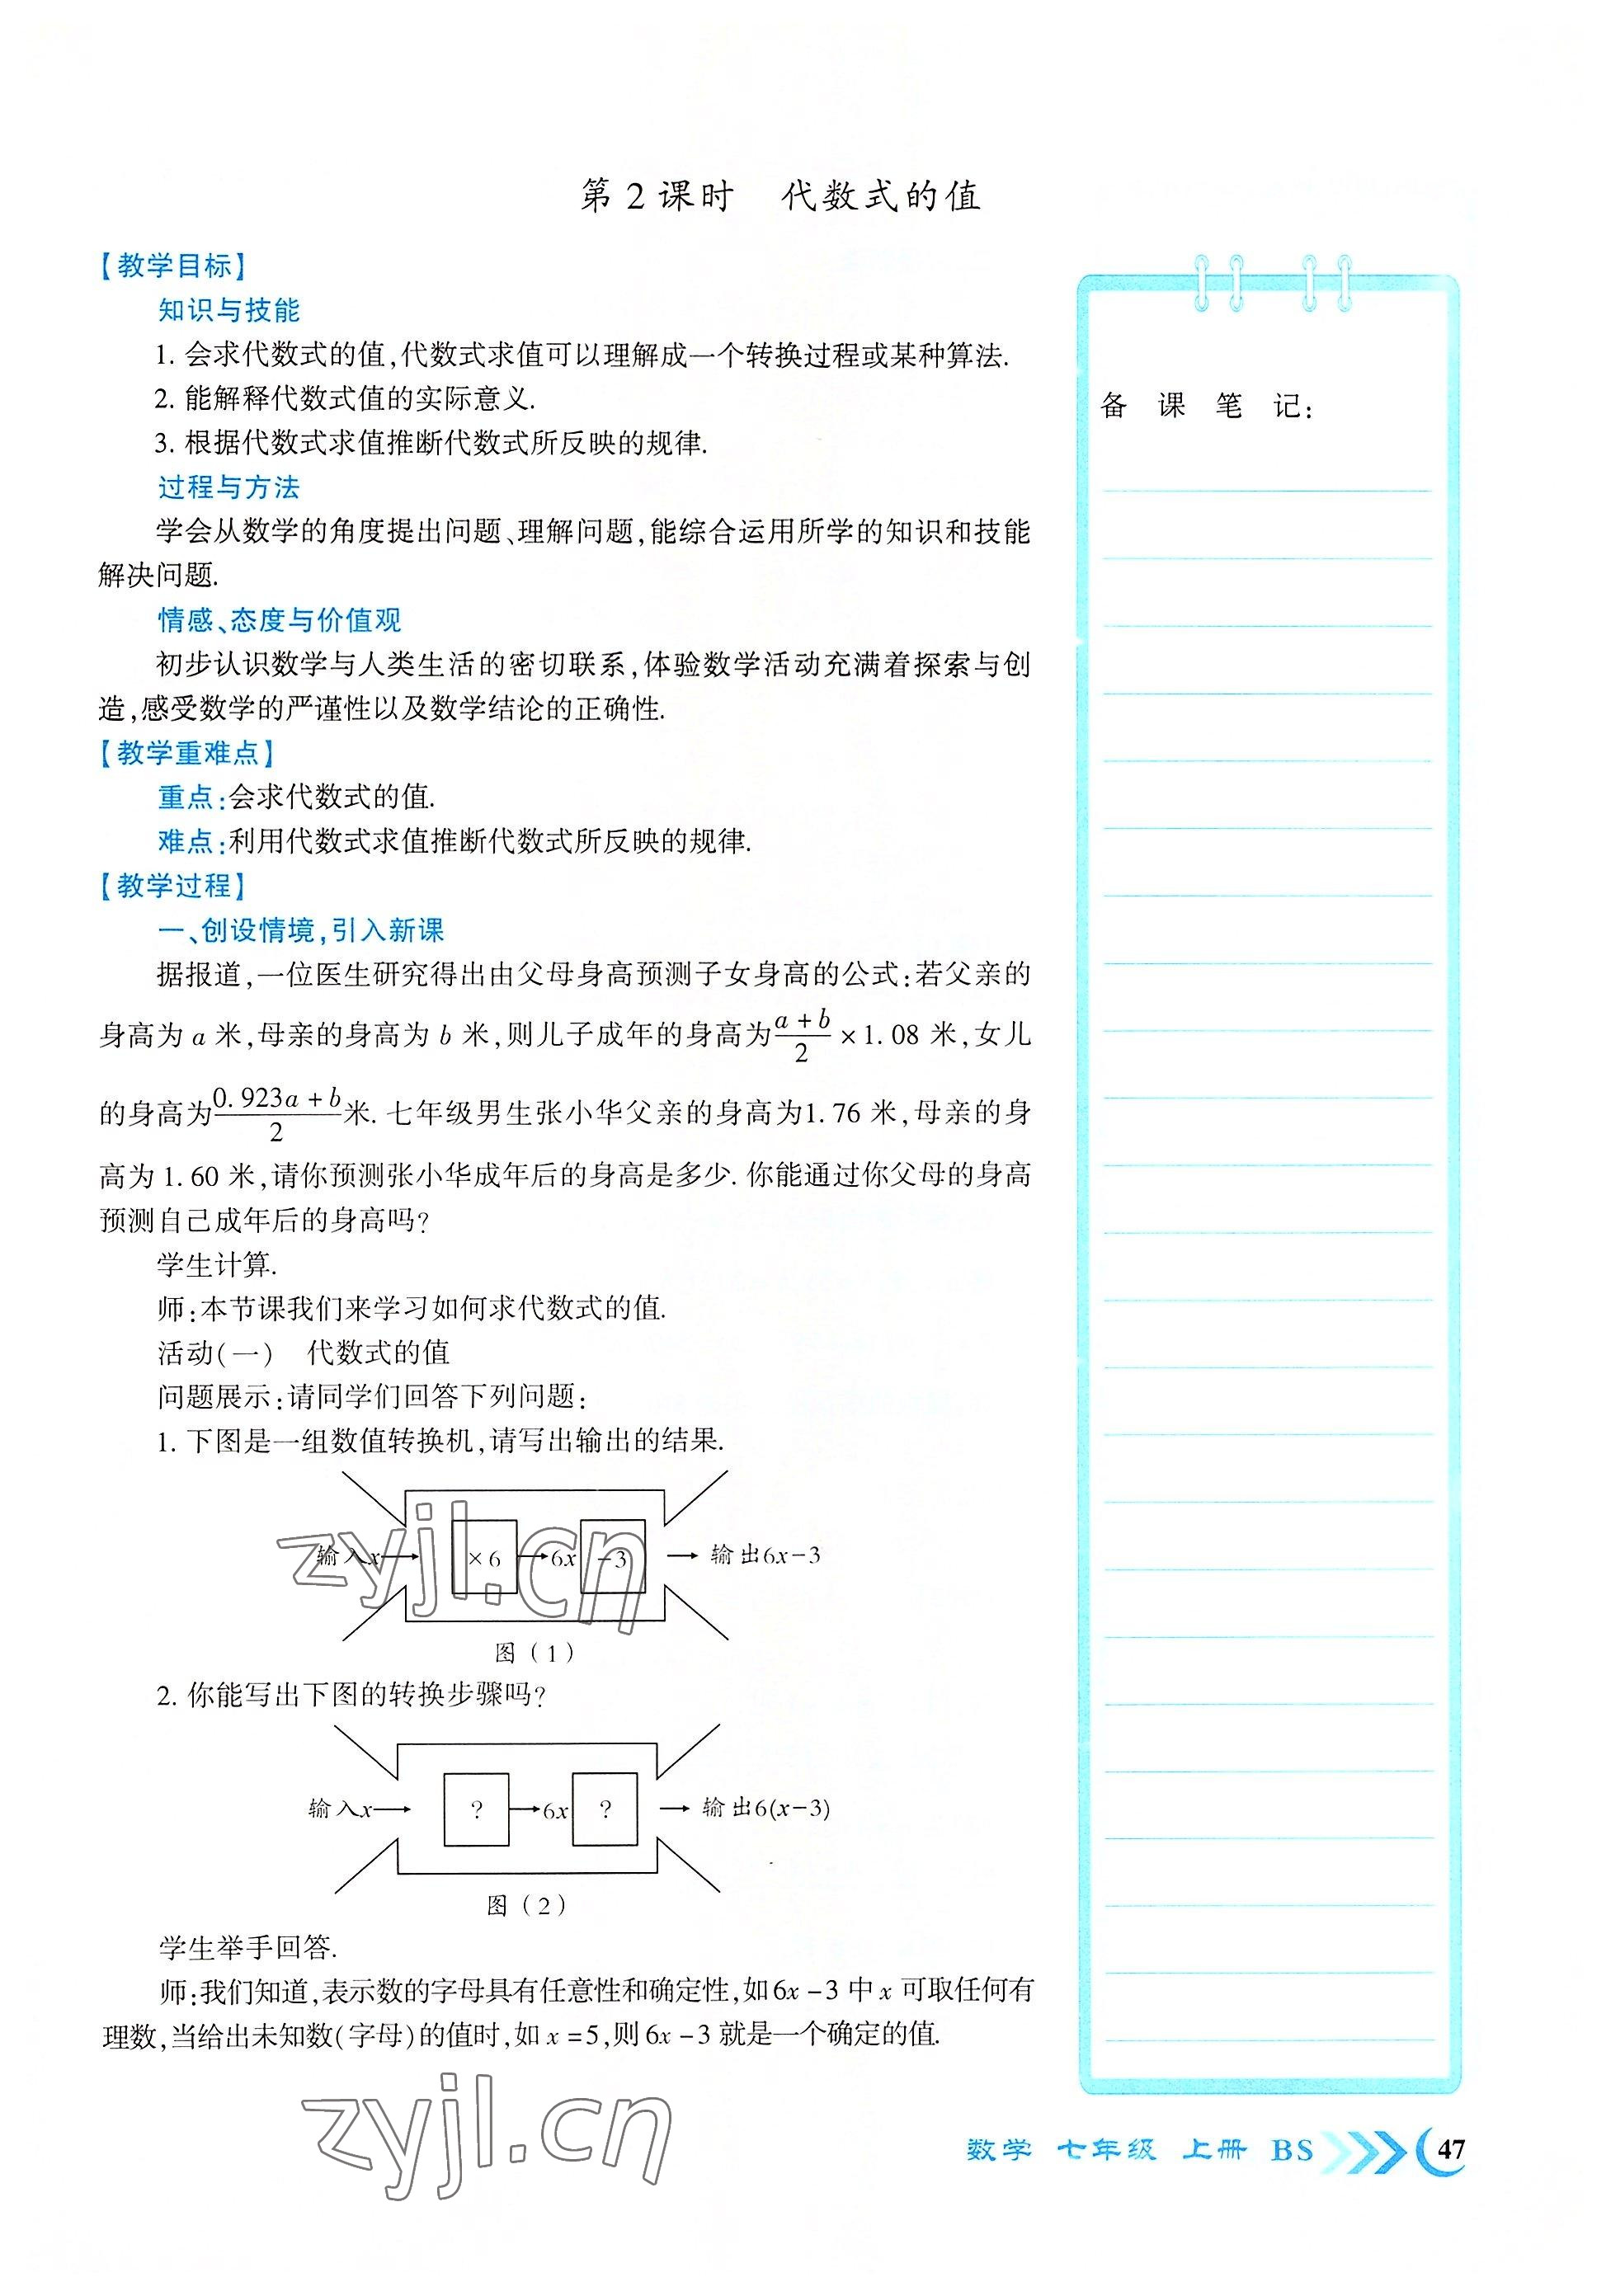 第2课时 代数式的值
【教学目标】
知识与技能
1. 会求代数式的值,代数式求值可以理解成一个转换过程或某种算法.
2. 能解释代数式值的实际意义.
3. 根据代数式求值推断代数式所反映的规律.
过程与方法
学会从数学的角度提出问题、理解问题,能综合运用所学的知识和技能
解决问题.
情感、态度与价值观
初步认识数学与人类生活的密切联系,体验数学活动充满着探索与创
造,感受数学的严谨性以及数学结论的正确性.
【教学重难点】
重点:会求代数式的值.
难点:利用代数式求值推断代数式所反映的规律.
【教学过程】
一、创设情境,引入新课
据报道,一位医生研究得出由父母身高预测子女身高的公式:若父亲的
身高为 a 米,母亲的身高为 b 米,则儿子成年的身高为(a+b)/2 ×1.08 米,女儿
的身高为(0.923a+b)/2米. 七年级男生张小华父亲的身高为1.76 米,母亲的身
高为 1.60 米,请你预测张小华成年后的身高是多少. 你能通过你父母的身高
预测自己成年后的身高吗?
学生计算.
师:本节课我们来学习如何求代数式的值.
活动(一) 代数式的值
问题展示:请同学们回答下列问题:
1. 下图是一组数值转换机,请写出输出的结果.
输入x → ×6 → 6x −3 → 输出6x−3
图(1)
2. 你能写出下图的转换步骤吗?
输入x → ? → 6x ? → 输出6(x−3)
图(2)
学生举手回答.
师:我们知道,表示数的字母具有任意性和确定性,如6x−3 中 x 可取任何有
理数,当给出未知数(字母)的值时,如 x=5,则 6x−3 就是一个确定的值.
备课笔记:
zyjl.cn
zyjl.cn
数学 七年级 上册 BS 47